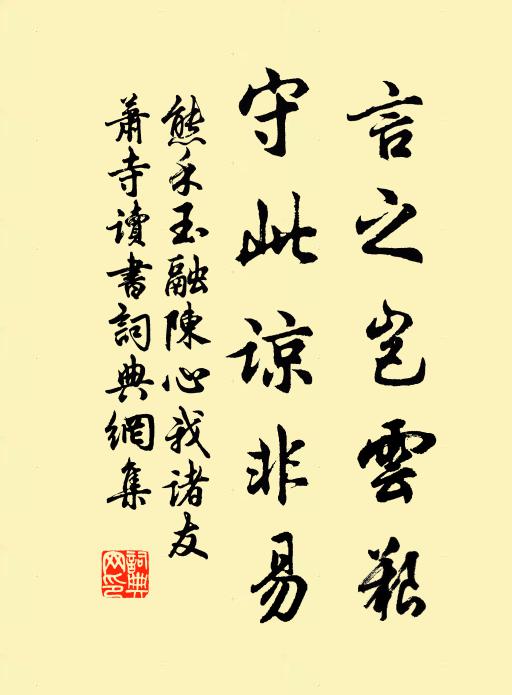 言之岂雲艱
守此谅非易
熊禾玉融陳心我諸友
蕭寺讀書詞典網集
詞典網印